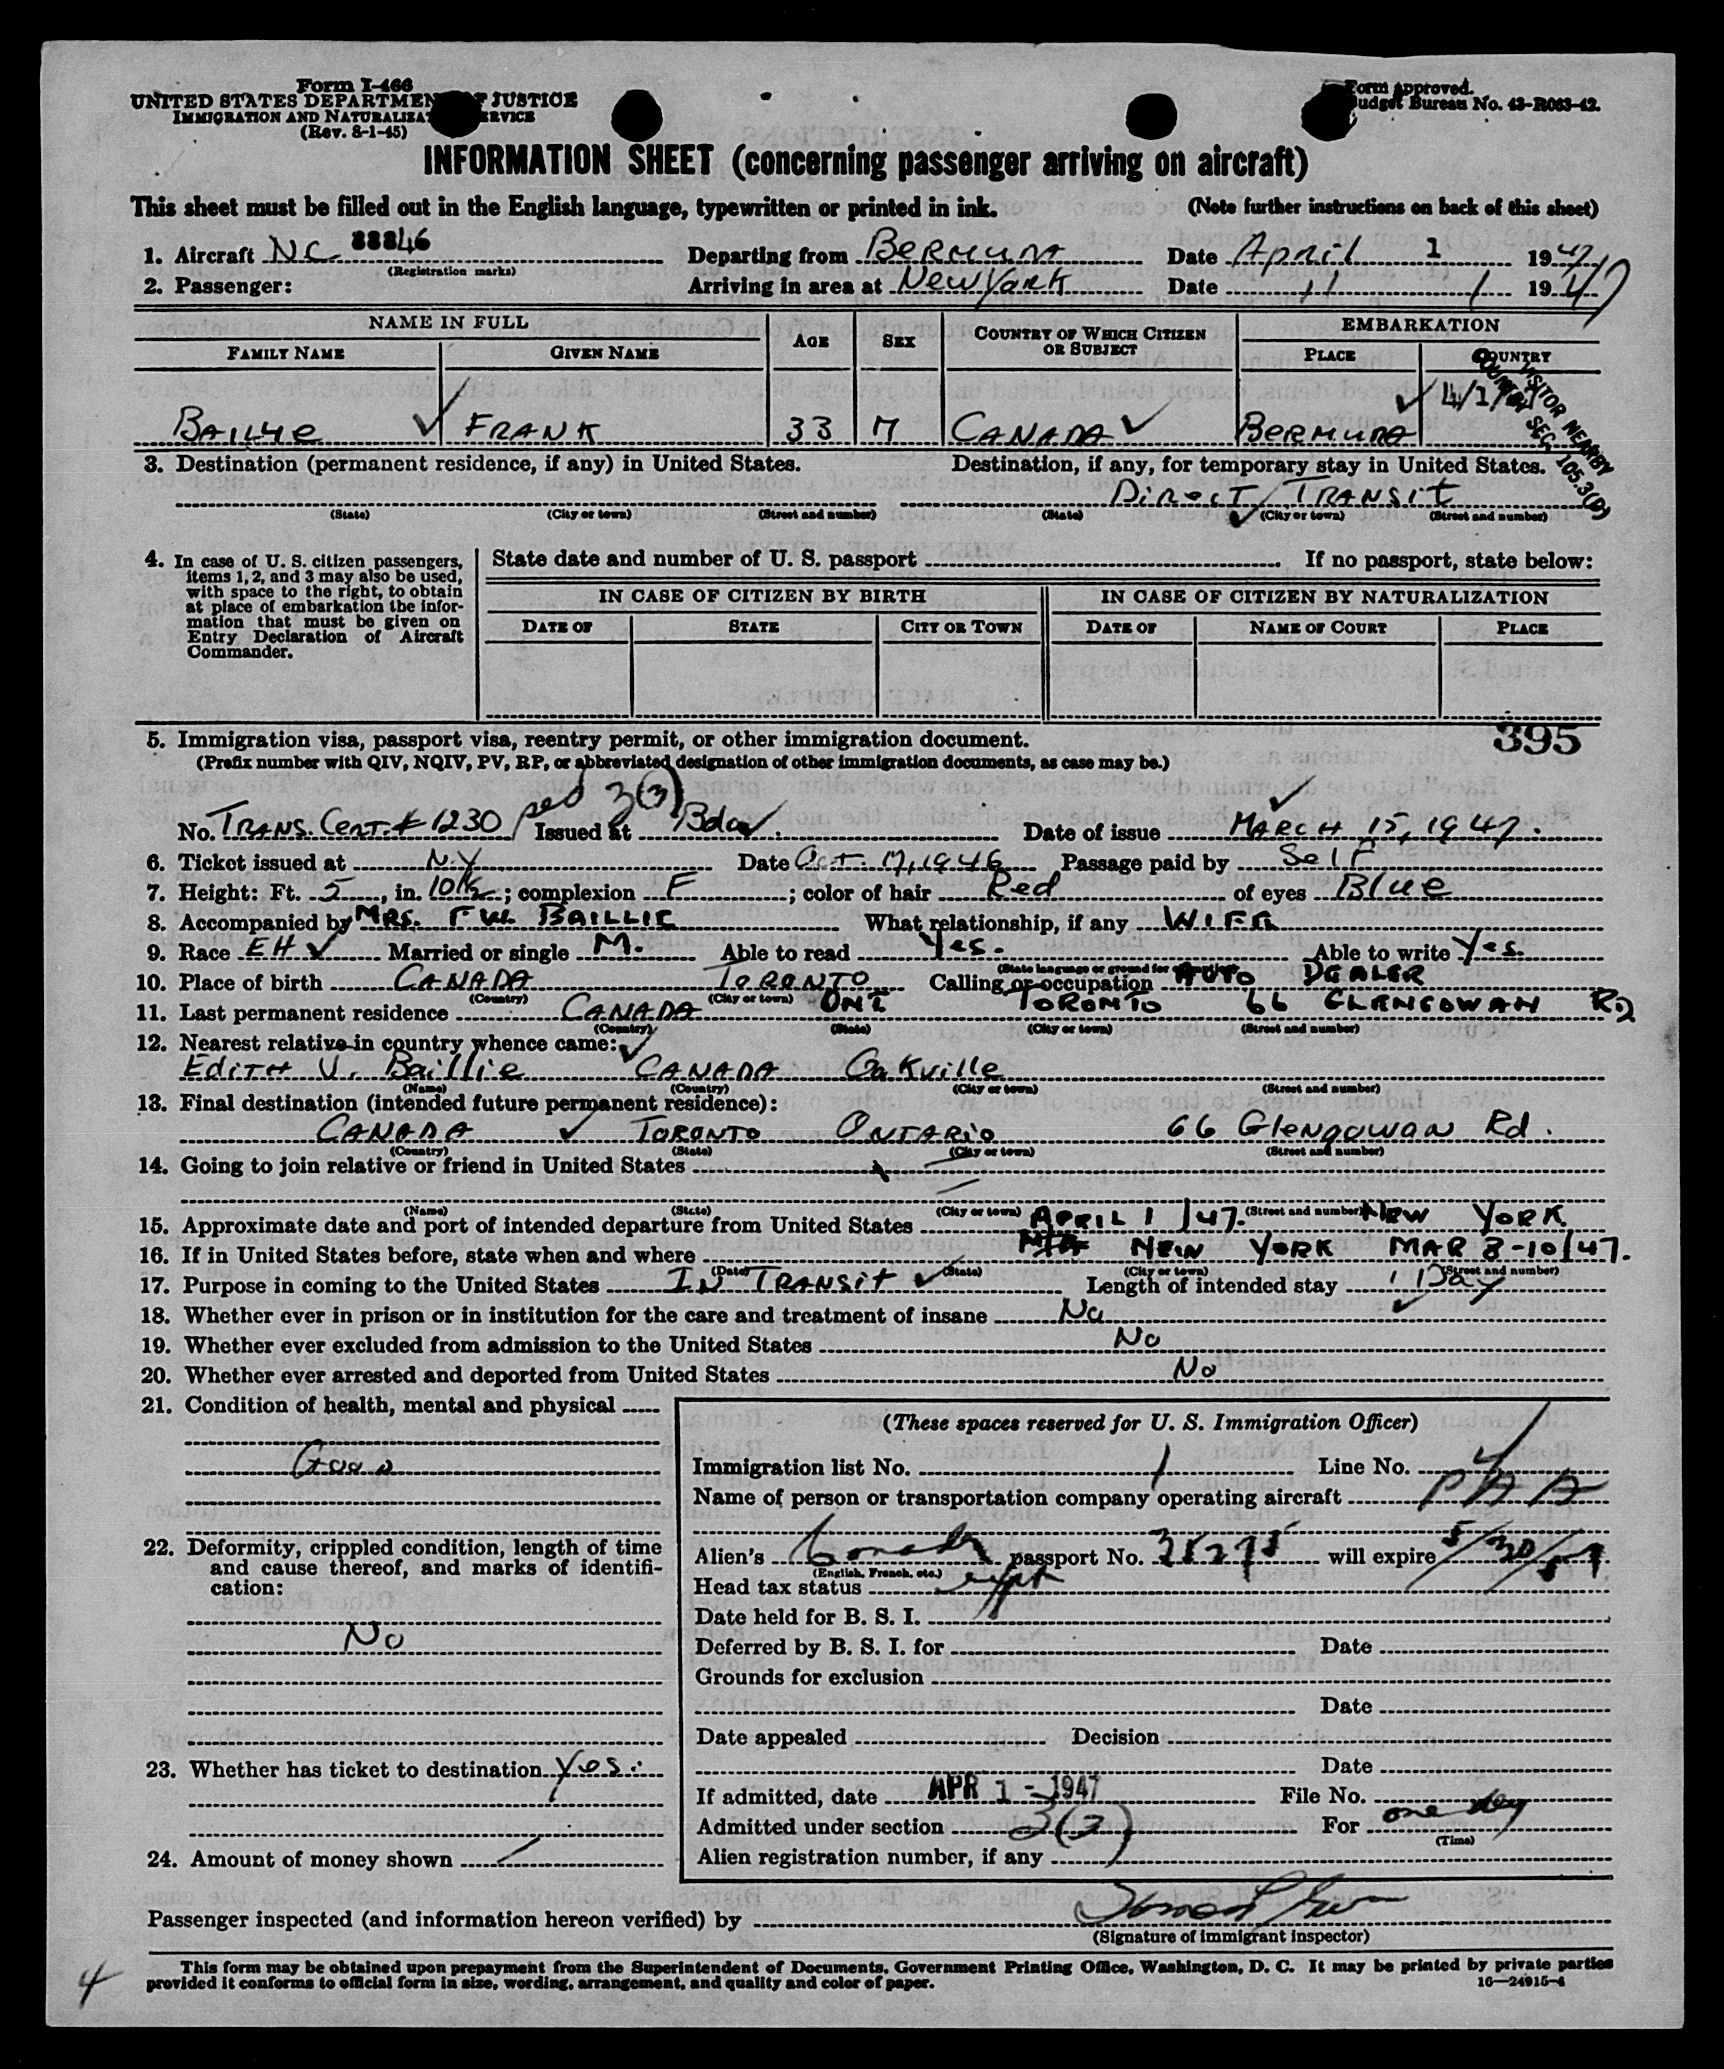 Form I-466
UNITED STATES DEPARTMENT OF JUSTICE
IMMIGRATION AND NATURALIZATION SERVICE
(Rev. 8-1-45)
Form approved.
Budget Bureau No. 43-R063-42.
INFORMATION SHEET (concerning passenger arriving on aircraft)
This sheet must be filled out in the English language, typewritten or printed in ink. (Note further instructions on back of this sheet)
1. Aircraft NC 88846 Departing from BERMUDA Date April 1 1947
(Registration marks)
2. Passenger: Arriving in area at New York Date 11 1 1947
NAME IN FULL AGE SEX COUNTRY OF WHICH CITIZEN OR SUBJECT EMBARKATION
FAMILY NAME GIVEN NAME PLACE COUNTRY
VISITOR NEARBY
COUNTRY SEC. 105.3(B)
BAILLIE FRANK 33 M CANADA BERMUDA
3. Destination (permanent residence, if any) in United States. Destination, if any, for temporary stay in United States.
DIRECT TRANSIT
(State) (City or town) (Street and number) (State) (City or town) (Street and number)
4. In case of U. S. citizen passengers, items 1, 2, and 3 may also be used, with space to the right, to obtain at place of embarkation the information that must be given on Entry Declaration of Aircraft Commander.
State date and number of U. S. passport If no passport, state below:
IN CASE OF CITIZEN BY BIRTH IN CASE OF CITIZEN BY NATURALIZATION
DATE OF STATE CITY OR TOWN DATE OF NAME OF COURT PLACE
395
5. Immigration visa, passport visa, reentry permit, or other immigration document.
(Prefix number with QIV, NQIV, PV, RP, or abbreviated designation of other immigration documents, as case may be.)
No. TRANS. CERT. # 1230 sed 3(3) Issued at Bda Date of issue MARCH 15, 1947.
6. Ticket issued at N.Y Date Oct. 17, 1946 Passage paid by Self
7. Height: Ft. 5, in. 10½; complexion F; color of hair Red of eyes Blue
8. Accompanied by MRS. F.W. BAILLIE What relationship, if any WIFE
9. Race EH Married or single M. Able to read Yes. Able to write Yes.
(State language or ground for exemption)
10. Place of birth CANADA TORONTO Calling or occupation AUTO DEALER
(Country) (City or town)
11. Last permanent residence CANADA ONT TORONTO 66 GLENGOWAN RD
(Country) (State) (City or town) (Street and number)
12. Nearest relative in country whence came:
EDITH V. Baillie CANADA Oakville
(Name) (Country) (City or town) (Street and number)
13. Final destination (intended future permanent residence):
CANADA TORONTO ONTARIO 66 Glengowan Rd.
(Country) (State) (City or town) (Street and number)
14. Going to join relative or friend in United States
(Name) (State) (City or town) (Street and number)
15. Approximate date and port of intended departure from United States APRIL 1/47. NEW YORK
16. If in United States before, state when and where NEW YORK MAR 8-10/47.
(Date) (State) (City or town) (Street and number)
17. Purpose in coming to the United States IN TRANSIT Length of intended stay 1 Day
18. Whether ever in prison or in institution for the care and treatment of insane No
19. Whether ever excluded from admission to the United States No
20. Whether ever arrested and deported from United States No
21. Condition of health, mental and physical
Good
22. Deformity, crippled condition, length of time and cause thereof, and marks of identification:
No
23. Whether has ticket to destination Yes.
24. Amount of money shown
(These spaces reserved for U. S. Immigration Officer)
Immigration list No. 1 Line No. 4
Name of person or transportation company operating aircraft PAA
Alien's Canada passport No. 35275 will expire 5/30/51
(English, French, etc.)
Head tax status
Date held for B. S. I.
Deferred by B. S. I. for Date
Grounds for exclusion
Date
Date appealed Decision
Date
If admitted, date APR 1 - 1947 File No.
Admitted under section 3(3) For one day
(Time)
Alien registration number, if any
Passenger inspected (and information hereon verified) by
(Signature of immigrant inspector)
This form may be obtained upon prepayment from the Superintendent of Documents, Government Printing Office, Washington, D. C. It may be printed by private parties
provided it conforms to official form in size, wording, arrangement, and quality and color of paper. 16—24915-4
4